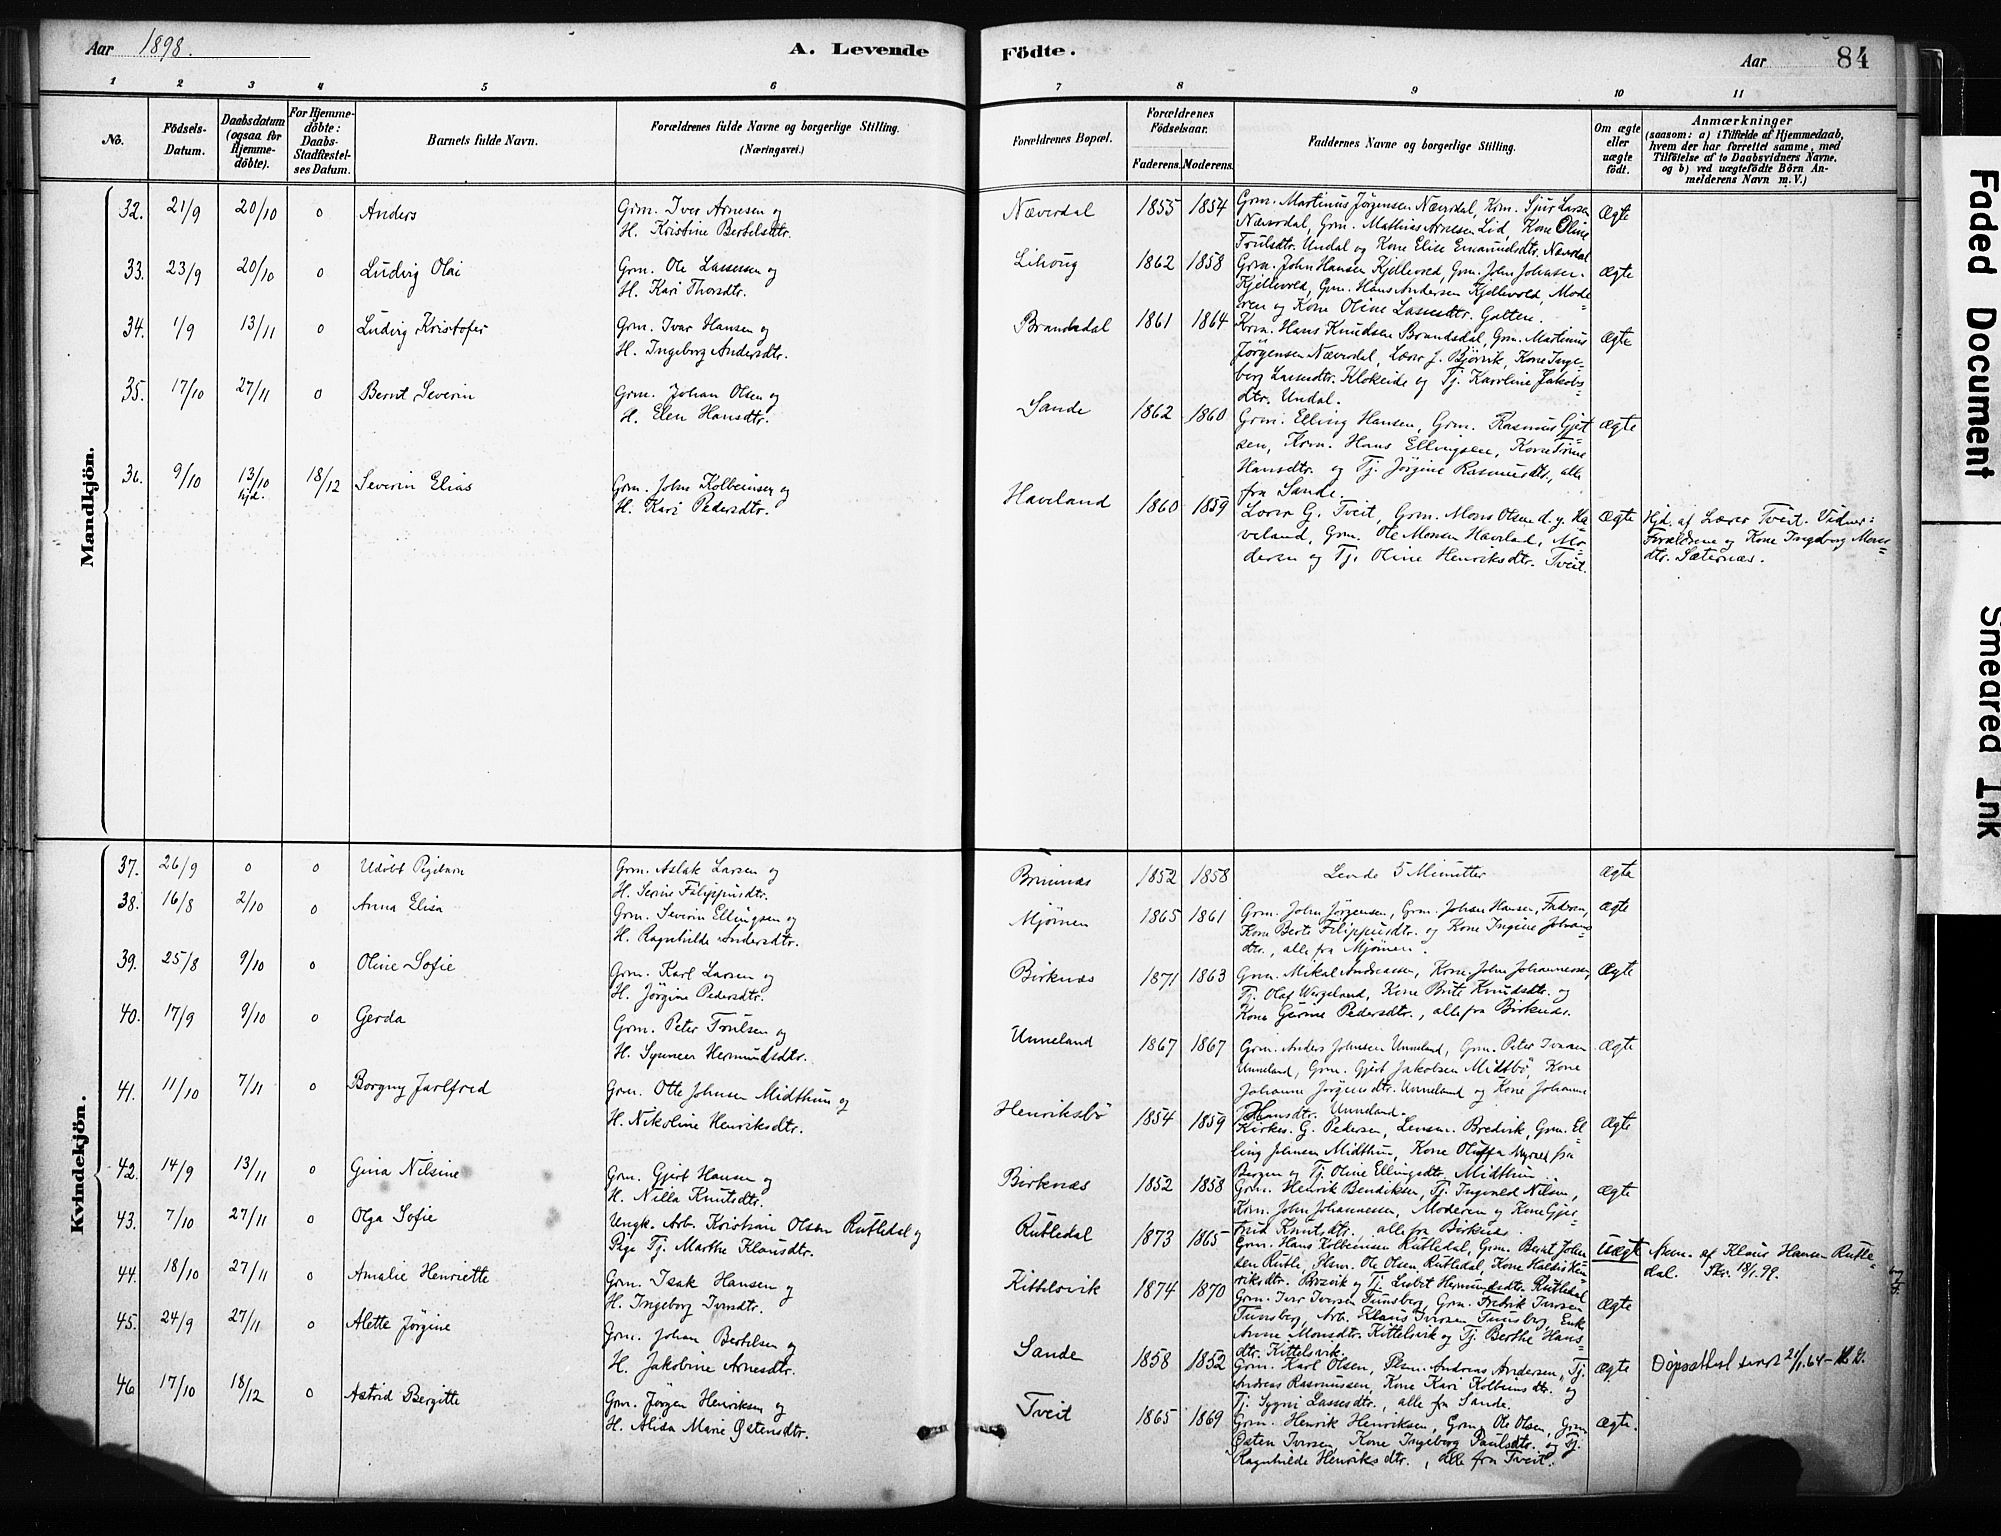 Aar 1898.
A. Levende Födte.
Aar 84
1 2 3 4 5 6 7 8 9 10 11
No.
Födsels-Datum.
Daabsdatum (ogsaa for Hjemme-döbte).
For Hjemme-döbte: Daabs-Stadfæstel-ses Datum.
Barnets fulde Navn.
Forældrenes fulde Navne og borgerlige Stilling.
(Næringsvei.)
Forældrenes Bopæl.
Forældrenes Födselsaar.
Faderens. Moderens.
Faddernes Navne og borgerlige Stilling.
Om ægte eller uægte födt.
Anmærkninger
(saasom: a) i Tilfælde af Hjemmedaab,
hvem der har forrettet samme, med
Tilföielse af to Daabsvidners Navne.
og b) ved uægtefödte Börn An-
melderens Navn m. V.)
Mandkjön.
32. 21/9 20/10 0 Anders
Grm. Iver Arnesen og
H. Kristine Bertelsdtr.
Næverdal 1855 1854
Grm. Martinus Jørgensen Næverdal, Krm. Sjur Larsen
Næverdal, Grm. Mathias Arnesen Lid, Kone Oline
Trulsdtr. Undal og Kone Elise Emanuelsdtr. Næverdal
Ægte
33. 23/9 20/10 0 Ludvig Olai
Grm. Ole Lassesen og
H. Kari Thorsdtr.
Lihoug 1862 1858
Grm. John Hansen Kjellevold, Grm. John Johnsen
Kjellevold, Grm. Hans Andersen Kjellevold, Mode-
ren og Kone Oline Lassesdtr. Gotten.
Ægte
34. 1/9 13/11 0 Ludvig Kristofer
Grm. Ivar Hansen og
H. Ingeborg Andersdtr.
Brandsdal 1861 1864
Krm. Hans Knudsen Brandsdal, Grm. Martinus
Jörgensen Næverdal, Lærer J. Bjørvik, Kone Inge-
borg Lassesdtr. Klokeide og Tj. Karoline Jakobs
dtr. Undal.
Ægte
35. 17/10 27/11 0 Bernt Severin
Grm. Johan Olsen og
H. Elen Hansdtr.
Sande 1862 1860
Grm. Elling Hansen, Grm. Rasmus Gjert
sen, Krm. Hans Ellingsen, Kone Trine
Hansdtr. og Tj. Jørgine Rasmusdtr., alle
fra Sande.
Ægte
36. 9/10 13/10 hjd. 18/12 Severin Elias
Grm. John Kolbeinsen og
H. Kari Pedersdtr.
Haveland 1860 1859
Lærer G. Tveit, Grm. Mons Olsen d. y. Ha-
veland, Grm. Ole Monsen Haveland, Mo-
deren og Tj. Oline Henriksdtr. Tveit.
Ægte
Hjd. af Lærer Tveit. Vidner:
Forældrene og Kone Ingeborg Mons-
dtr. Sæternæs.
Kvindekjön.
37. 26/9 0 0 Udöbt Pigebarn
Grm. Aslak Larsen og
H. Serine Filippusdtr.
Brinnæs 1852 1858
Levede 5 Minutter
Ægte
38. 16/8 2/10 0 Anna Elisa
Grm. Severin Ellingsen og
H. Ragnhilde Andersdtr.
Mjømen 1865 1861
Grm. John Jørgensen, Grm. Johan Hansen, Faderen,
Kone Berte Filippusdtr. og Kone Ingine Johans-
dtr., alle fra Mjömen.
Ægte
39. 25/8 9/10 0 Oline Sofie
Grm. Karl Larsen og
H. Jörgine Pedersdtr.
Birknæs 1871 1863
Grm. Mikal Andreassen, Kone John Johannessen,
Tj. Olaf Wergeland, Kone Brite Knudsdtr. og
Kone Gurine Pedersdtr., alle fra Birknæs.
Ægte
40. 17/9 9/10 0 Gerda
Grm. Peter Trulsen og
H. Synneer Hermundsdtr.
Unneland 1867 1867
Grm. Anders Johnsen Unneland, Grm. Peter Iversen
Unneland, Grm. Gjert Jakobsen Midtbö, Kone
Johanne Jørgensdtr. Unneland og Kone Johanne
Hansdtr. Unneland.
Ægte
41. 11/10 7/11 0 Borgny Jarlfred
Grm. Otte Johnsen Midthun og
H. Nikoline Henriksdtr.
Henriksbö 1854 1859
Kirkes. G. Pedersen, Lensm. Bredvik, Grm. El-
ling Johnsen Midthun, Kone Oluffa Myrvel fra
Bergen og Tj. Oline Ellingsdtr. Midthun.
Ægte
42. 14/9 13/11 0 Gina Nilsine
Grm. Gjert Hansen og
H. Nilla Knutsdtr.
Birknæs 1852 1858
Grm. Henrik Bendiksen, Tj. Ingvald Nilsen,
Krm. John Johannessen, Moderen og Kone Gjer-
trud Knutsdtr., alle fra Birknæs.
Ægte
43. 7/10 27/11 0 Olga Sofie
Ungk. Arb. Kristian Olsen Rutledal og
Pige Tj. Marthe Klausdtr.
Rutledal 1873 1865
Grm. Hans Kolbeinsen Rutledal, Grm. Bernt Johan
sen Rutle, Plsm. Ole Olsen Rutledal, Kone Haldis Hen-
riksdtr. Brosvik og Tj. Lisbet Hermundsdtr. Rutledal
Uægt
Anm. af Klaus Hansen Rutle-
dal. Skr. 18/1.99.
44. 18/10 27/11 0 Amalie Henriette
Grm. Isak Hansen og
H. Ingeborg Iversdtr.
Kittelsvik 1874 1870
Grm. Iver Iversen Tunsberg, Grm. Fredrik Iversen
Tunsberg, Arb. Klaus Iversen Tunsberg, Enke
Anne Monsdtr. Kittelsvik og Tj. Berthe Hans-
dtr. Kittelsvik.
Ægte
45. 24/9 27/11 0 Alette Jörgine
Grm. Johan Bertelsen og
H. Jakobine Arnesdtr.
Sande 1858 1852
Grm. Karl Olsen, Plsm. Andreas Andersen, Tj.
Andreas Rasmussen, Kone Kari Kolbeinsdtr. og
Tj. Sygni Lassesdtr., alle fra Sande.
Ægte
Döpsattest sendt 21/1.64
46 17/10 18/12 0 Astrid Bergitte
Grm. Jørgen Henriksen og
H. Alisa Marie Østensdtr.
Tveit 1865 1869
Grm. Henrik Henriksen, Grm. Ole Olsen, Grm.
Østen Iversen, Kone Ingeborg Paulsdtr. og Tj.
Ragnhilde Henriksdtr., alle fra Tveit.
Ægte.
Faded Document
Smeared Ink